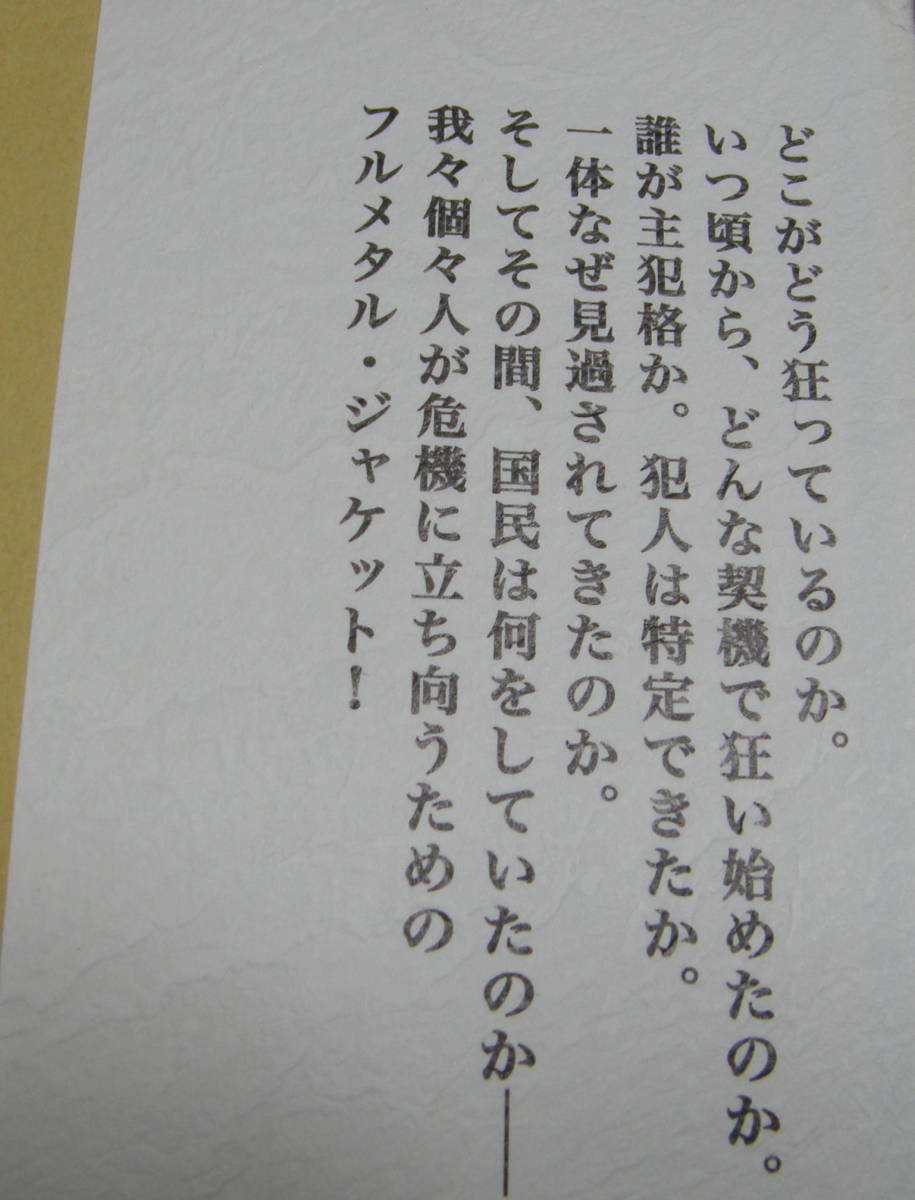 どこがどう狂っているのか。
いつ頃から、どんな契機で狂い始めたのか。
誰が主犯格か。犯人は特定できたか。
一体なぜ見過されてきたのか。
そしてその間、国民は何をしていたのか――
我々個々人が危機に立ち向うための
フルメタル・ジャケット!